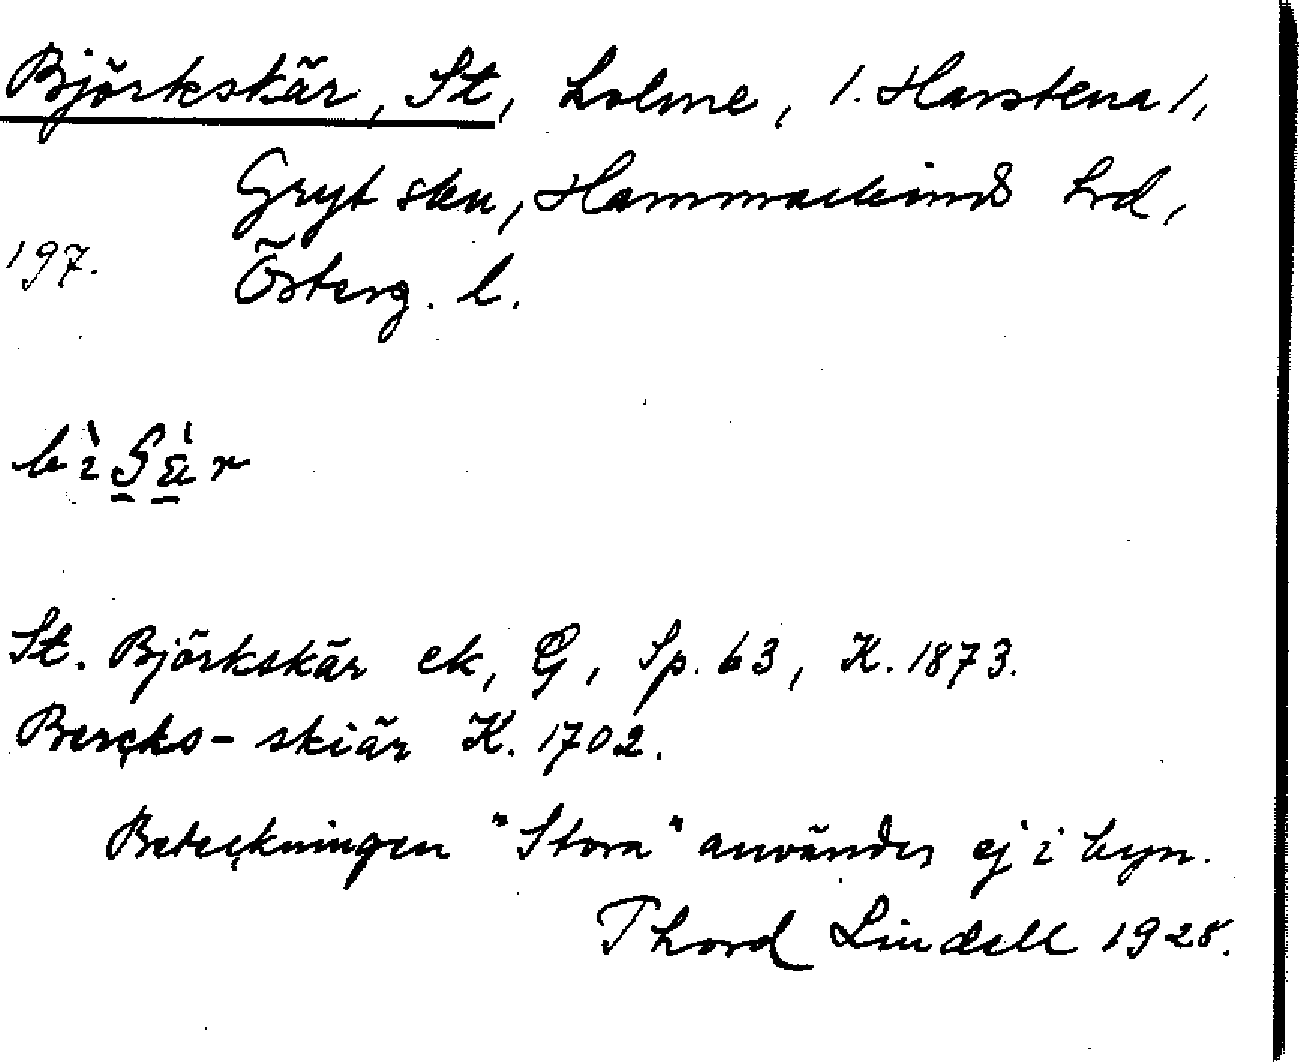 Björkskär, St, holme, /. Harstena /,
Gryt skn, Hammarkinds hrd,
197. Österg. l.
St. Björkskär ek, G, Sp. 63, K. 1873.
Bercks-skiär K. 1702.
Beteckningen "Stora" användes ej i byn.
Thord Lindell 1928.